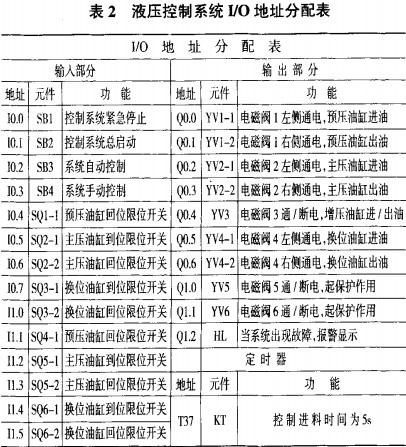 表 2 液压控制系统 I/O 地址分配表
I/O 地 址 分 配 表
输入部分 输 出 部 分
地址 元件 功 能 地址 元件 功 能
I0.0 SB1 控制系统紧急停止 Q0.0 YV1-1 电磁阀 1 左侧通电,预压油缸进油
I0.1 SB2 控制系统总启动 Q0.1 YV1-2 电磁阀 1 右侧通电,预压油缸出油
I0.2 SB3 系统自动控制 Q0.2 YV2-1 电磁阀 2 左侧通电,主压油缸进油
I0.3 SB4 系统手动控制 Q0.3 YV2-2 电磁阀 2 右侧通电,主压油缸出油
I0.4 SQ1-1 预压油缸回位限位开关 Q0.4 YV3 电磁阀 3 通/断电,增压油缸进/出油
I0.5 SQ2-1 主压油缸到位限位开关 Q0.5 YV4-1 电磁阀 4 左侧通电,换位油缸进油
I0.6 SQ2-2 主压油缸回位限位开关 Q0.6 YV4-2 电磁阀 4 右侧通电,换位油缸出油
I0.7 SQ3-1 换位油缸到位限位开关 Q1.0 YV5 电磁阀 5 通/断电,起保护作用
I1.0 SQ3-2 换位油缸回位限位开关 Q1.1 YV6 电磁阀 6 通/断电,起保护作用
I1.1 SQ4-1 预压油缸回位限位开关 Q1.2 HL 当系统出现故障,报警显示
I1.2 SQ5-1 主压油缸到位限位开关 定 时 器
I1.3 SQ5-2 主压油缸回位限位开关 地址 元件 功 能
I1.4 SQ6-1 换位油缸到位限位开关 T37 KT 控制进料时间为 5s
I1.5 SQ6-2 换位油缸回位限位开关